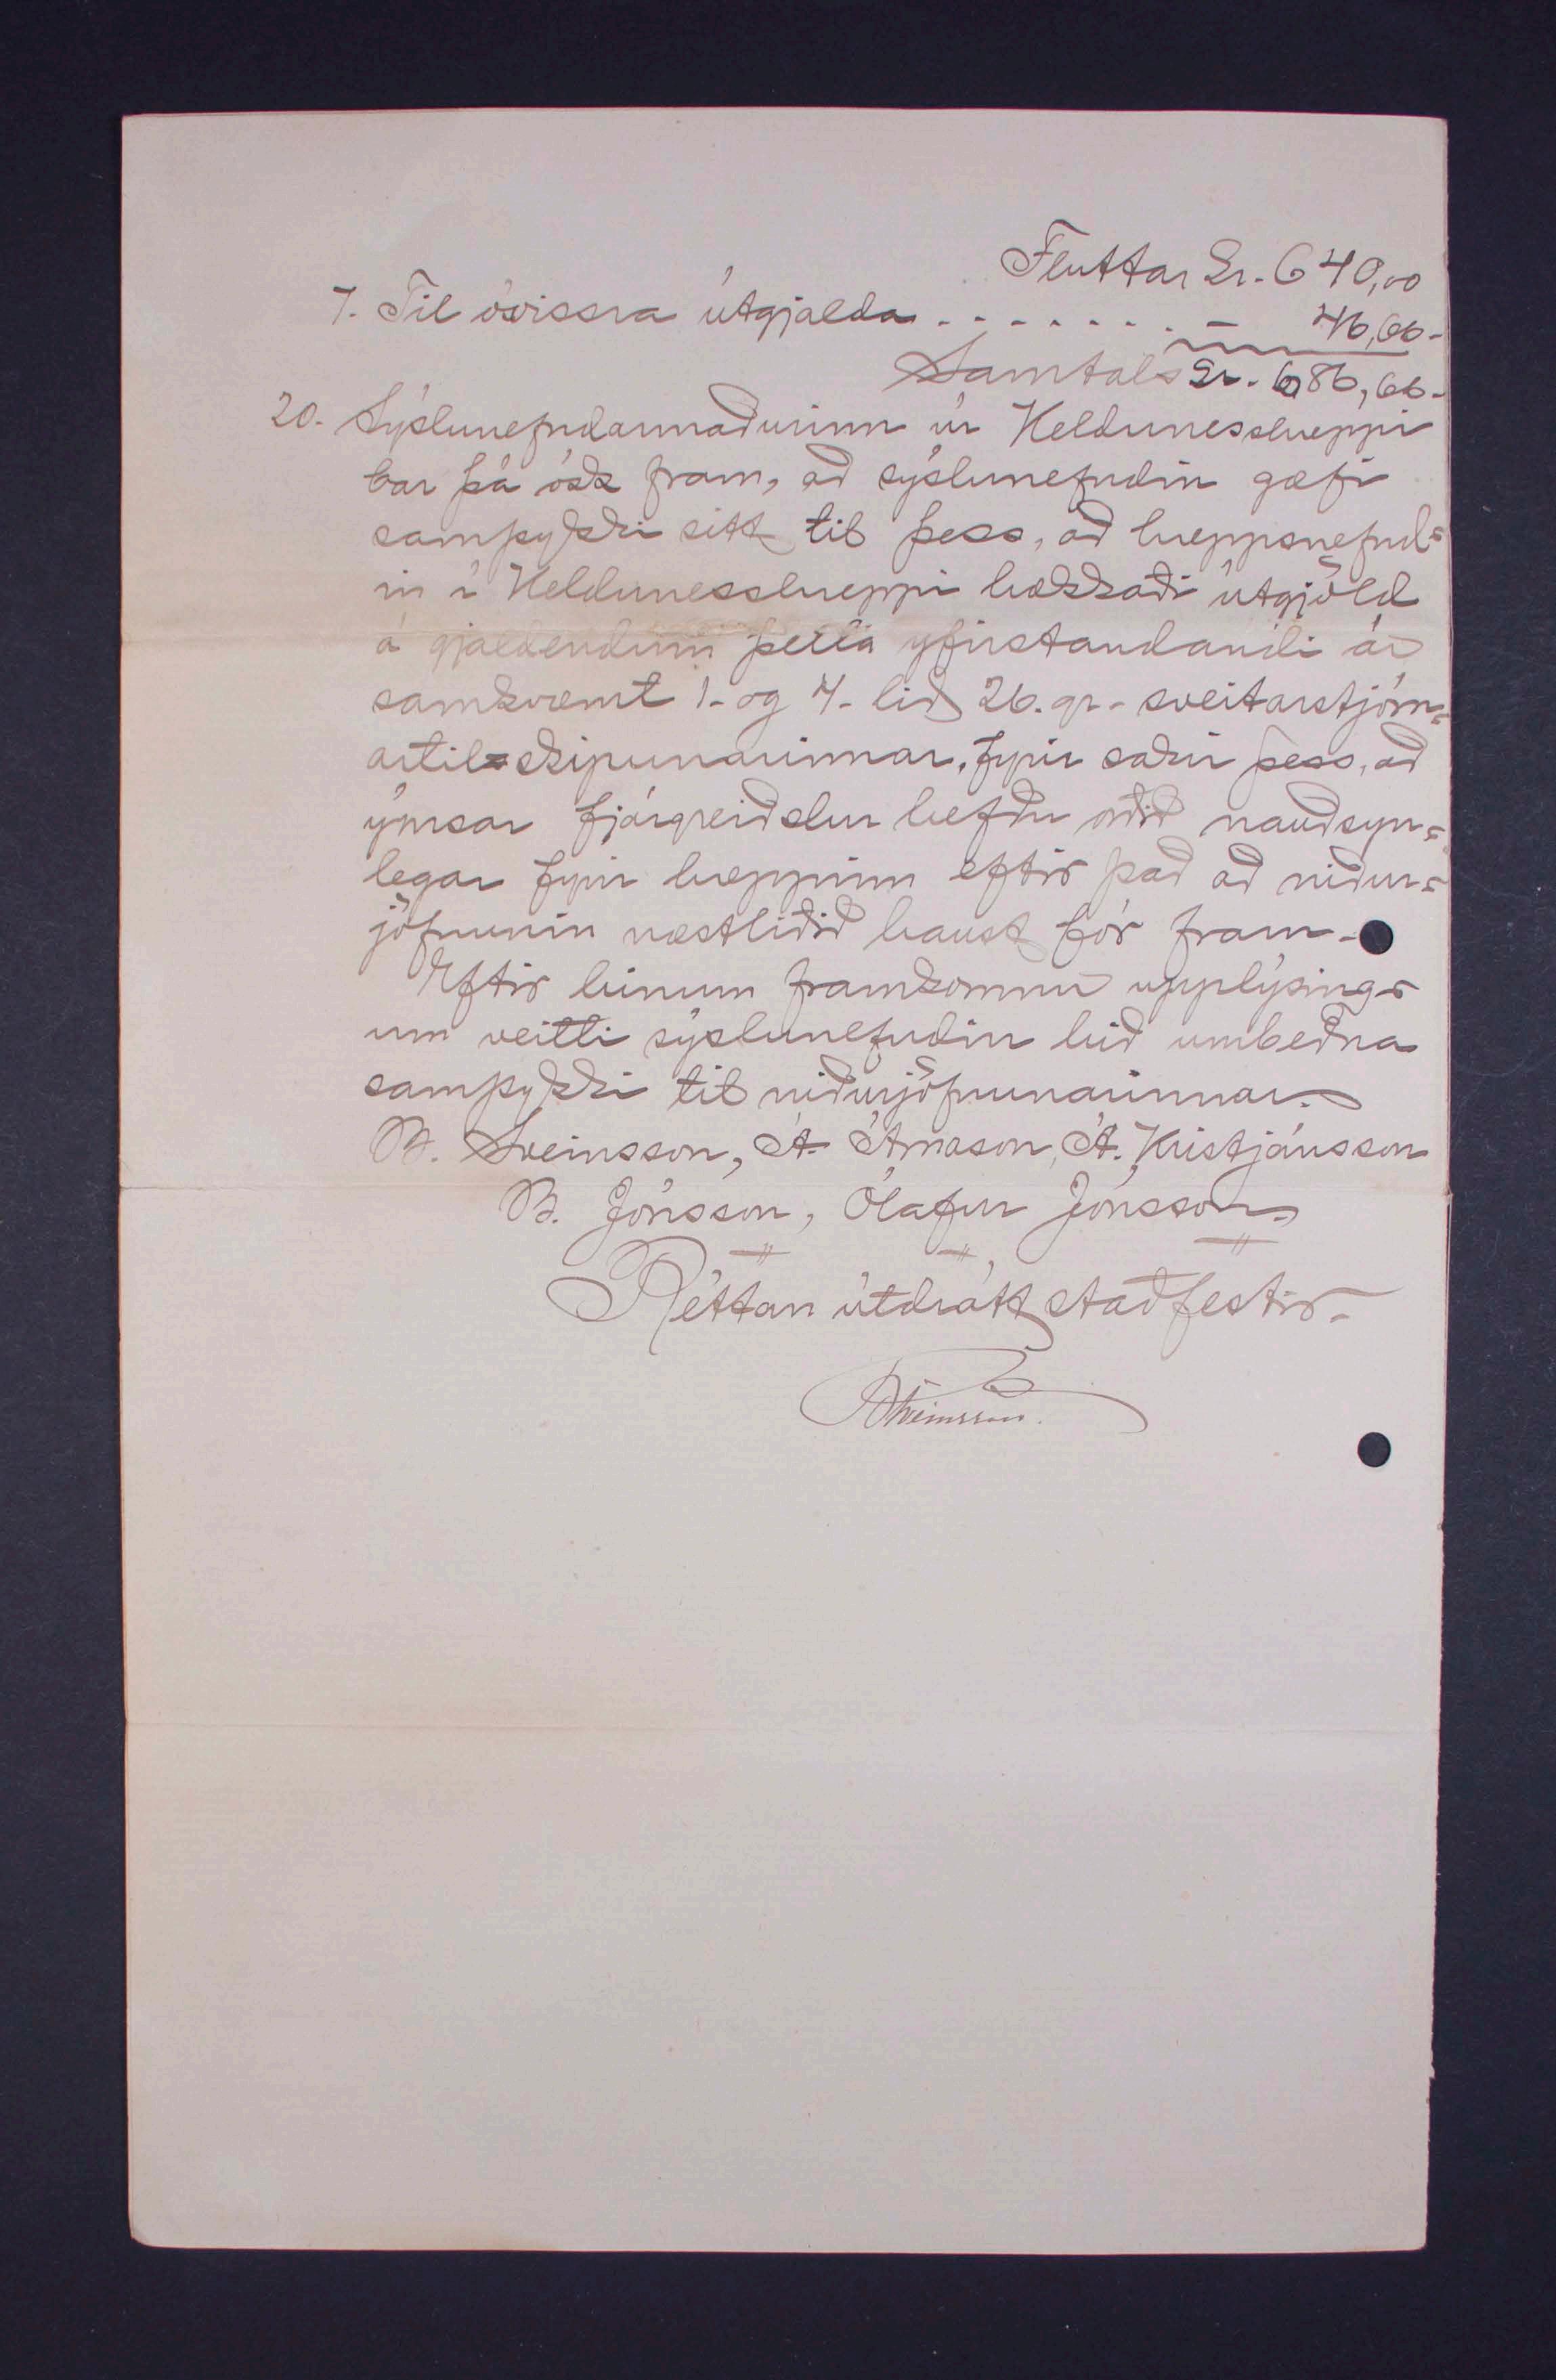 Fluttar Kr. 640,00
7. Til óvissra útgjalda . . . . . . . . - 46,66.
Samtals Kr. 686,66.
20. Sýslunefndarmaðurinn úr Keldunesshreppi
bar þá ósk fram, að sýslunefndin gæfi
samþykki sitt til þess, að hreppsnefnd=
in í Keldunesshreppi hækkaði útgjöld
á gjaldendum þetta yfirstandandi ár
samkvæmt 1. og 4. lið 26. gr. sveitarstjórn=
artilskipunarinnar, fyrir sakir þess, að
ýmsar fjárgreiðslur hefðu orðið nauðsyn=
legar fyrir hreppinn eftir það að niður=
jöfnunin næstliðið haust fór fram.
Eftir hinum framkomnu upplýsing=
um veitti sýslunefndin hið umbeðna
samþykki til niðurjöfnunarinnar.
B. Sveinsson, Á. Árnason, Á. Kristjánsson
B. Jónsson, Ólafur Jónsson.
Réttan útdrátt staðfestir.
BSveinsson.